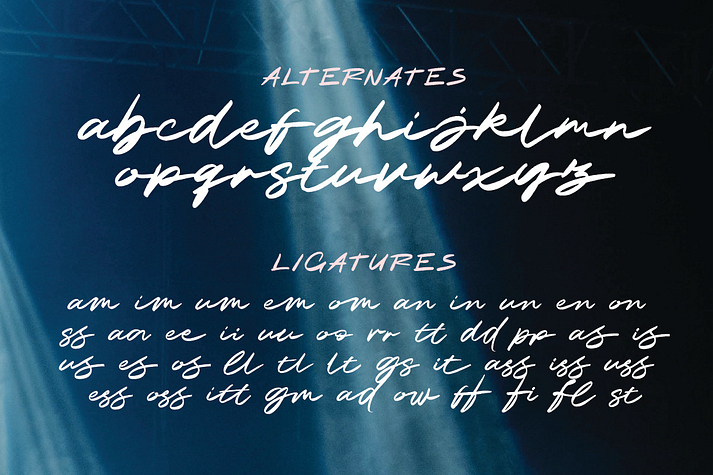 ALTERNATES
abcdefghijklmn
opqrstuvwxyz
LIGATURES
am im um em om an in un en on
ss aa ee ii uu oo rr tt dd pp as is
us es os ll tl lt gs it ass iss uss
ess oss itt gm ad ow ff fi fl st